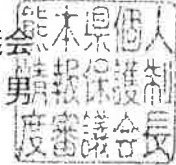 会
男
熊本県個人
情報保護制
度審議会長